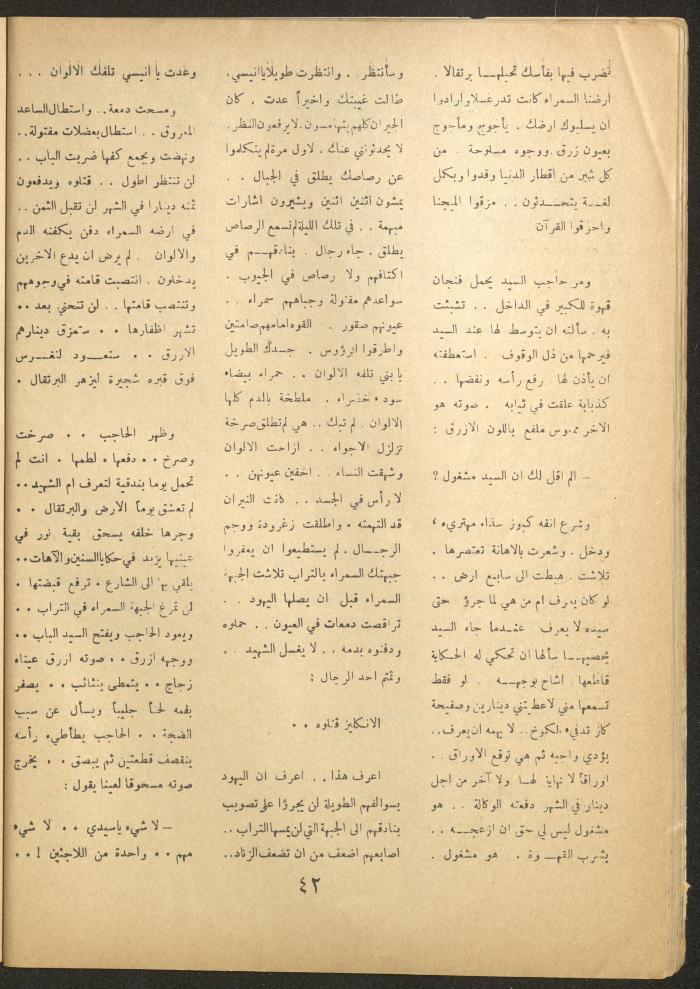 تضرب فيها بفأسك تحيلهـــا برتقالا .
ارضنا السمراء كانت تدر عسلا وارادوا
ان يسلبوك ارضك . يأجوج ومأجوج
بعيون زرق ووجوه مسلوخة . من
كل شبر من اقطار الدنيا وفدوا وبكل
لغـــة يتحـــدثون .. مزقوا الميجنا
واحرقوا القرآن
ومر حاجب السيد يحمل فنجان
قهوة للكبير في الداخل . . تشبثت
به . سألته ان يتوسط لها عند السيد
فيرحمها من ذل الوقوف . استعطفته
ان يأذن لها . رفع رأسه ونفضها . .
كذبابة علقت في ثيابه . صوته هو
الاخر ملفع باللون الازرق :
ــ الم اقل لك ان السيد مشغول ؟
وشرع انفه كبوز حذاء مهتريء ،
ودخل . وشعرت بالاهانة تعتصرها .
تلاشت . هبطت الى سابع ارض . .
لو كان يعرف ام من هي لما جرؤ حتى
سيده لا يعرف . عندمـا جاء السيد
يحصيهـــا سألها ان تحكي له الحكاية
قاطعها . اشاح بوجهـــه . لو فقط
تسمعها مني لاعطيتني دينارين وصفيحة
كاز تدفيء الكوخ .. لا يهمه ان يعرف ..
يؤدي واجبه ثم هي توقع الاوراق . .
اوراقاً لا نهاية لهـا ولا آخر من اجل
دينار في الشهر دفعته الوكالة . . هو
مشغول ليس لي حق ان ازعجـــه . .
يشرب القهـــوة . هو مشغول .
وسأنتظر . . وانتظرت طويلاً يا انيسي.
طالت غيبتك واخيراً عدت . كان
الجيران كلهم يتهامسون . لا يرفعون النظر.
لا يحدثونني عنك . لاول مرة لم يتكلموا
عن رصاصك يطلق في الجبال . .
يمشون اثنين اثنين ويشيرون اشارات
مبهمة . . في تلك الليلة لم نسمع الرصاص
يطلق . جاء رجال . بنادقهـــم في
اكتافهم ولا رصاص في الجيوب .
سواعدهم مفتولة وجباههم سمراء . .
عيونهم صقور . . القوه امامهم صامتين
واطرقوا الرؤوس . جسدك الطويل
يا بني تلفه الالوان . . حمراء بيضاء
سوداء خضراء . ملطخة بالدم كلها
الالوان . لم تبك .. هي لم تطلق صرخة
تزلزل الاجواء . . ازاحت الالوان
وشهقت النساء . . اخفين عيونهن . .
لا رأس في الجسد . . كانت النيران
قد التهمته . واطلقت زغرودة ووجم
الرجـــال . لم يستطيعوا ان يعفروا
جبهتك السمراء بالتراب تلاشت الجبهة
السمراء قبل ان يصلها اليهود . .
تراقصت دمعات في العيون . . حملوه
ودفنوه بدمه . . لا يغسل الشهيد . .
وتمتم احد الرجال :
الانكليز قتلوه . .
اعرف هذا . . اعرف ان اليهود
بسوالفهم الطويلة لن يجرؤا على تصويب
بنادقهم الى الجبهة التي لن يمسها التراب . .
اصابعهم اضعف من ان تضعف الزناد..
وعدت يا انيسي تلفك الالوان . . .
ومسحت دمعة . . واستطال الساعد
المعروق . . استطال بعضلات مفتولة . .
ونهضت وبجمع كفها ضربت الباب . .
لن تنتظر اطول . . قتلوه ويدفعون
ثمنه دينارا في الشهر لن تقبل الثمن . .
في ارضه السمراء دفن يكفنه الدم
والالوان . لم يرض ان يدع الاخرين
يدخلون . انتصبت قامته في وجوههم
وتنتصب قامتها . . لن تنحني بعد . .
تشهر اظفارها . . ستمزق دينارهم
الازرق . . ستعـــود لتغـــرس
فوق قبره شجيرة ليزهر البرتقال .
وظهر الحاجب . . صرخت
وصرخ . . دفعها . لطمها . انت لم
تحمل يوما بندقية لتعرف ام الشهيد . .
لم تعشق يوماً الارض والبرتقال . .
وجرها خلفه يسحق بقية نور في
عينيها يزيد في حكايا السنين والآهات . .
يلقي بها الى الشارع . ترفع قبضتها .
لن تمرغ الجبهة السمراء في التراب . .
ويعود الحاجب ويفتح السيد الباب . .
ووجهه ازرق . . صوته ازرق عيناه
زجاج . . يتمطى بتثائب . . يصفر
بفمه لحناً جليبا ويسأل عن سبب
الضجة . . الحاجب يطأطيء رأسه
ينقصف قطعتين ثم يبصق . . يخرج
صوته مسحوقا لعينا يقول :
ــ لا شيء يا سيدي . . لا شيء
مهم . . واحدة من اللاجئين ! . .
٤٢